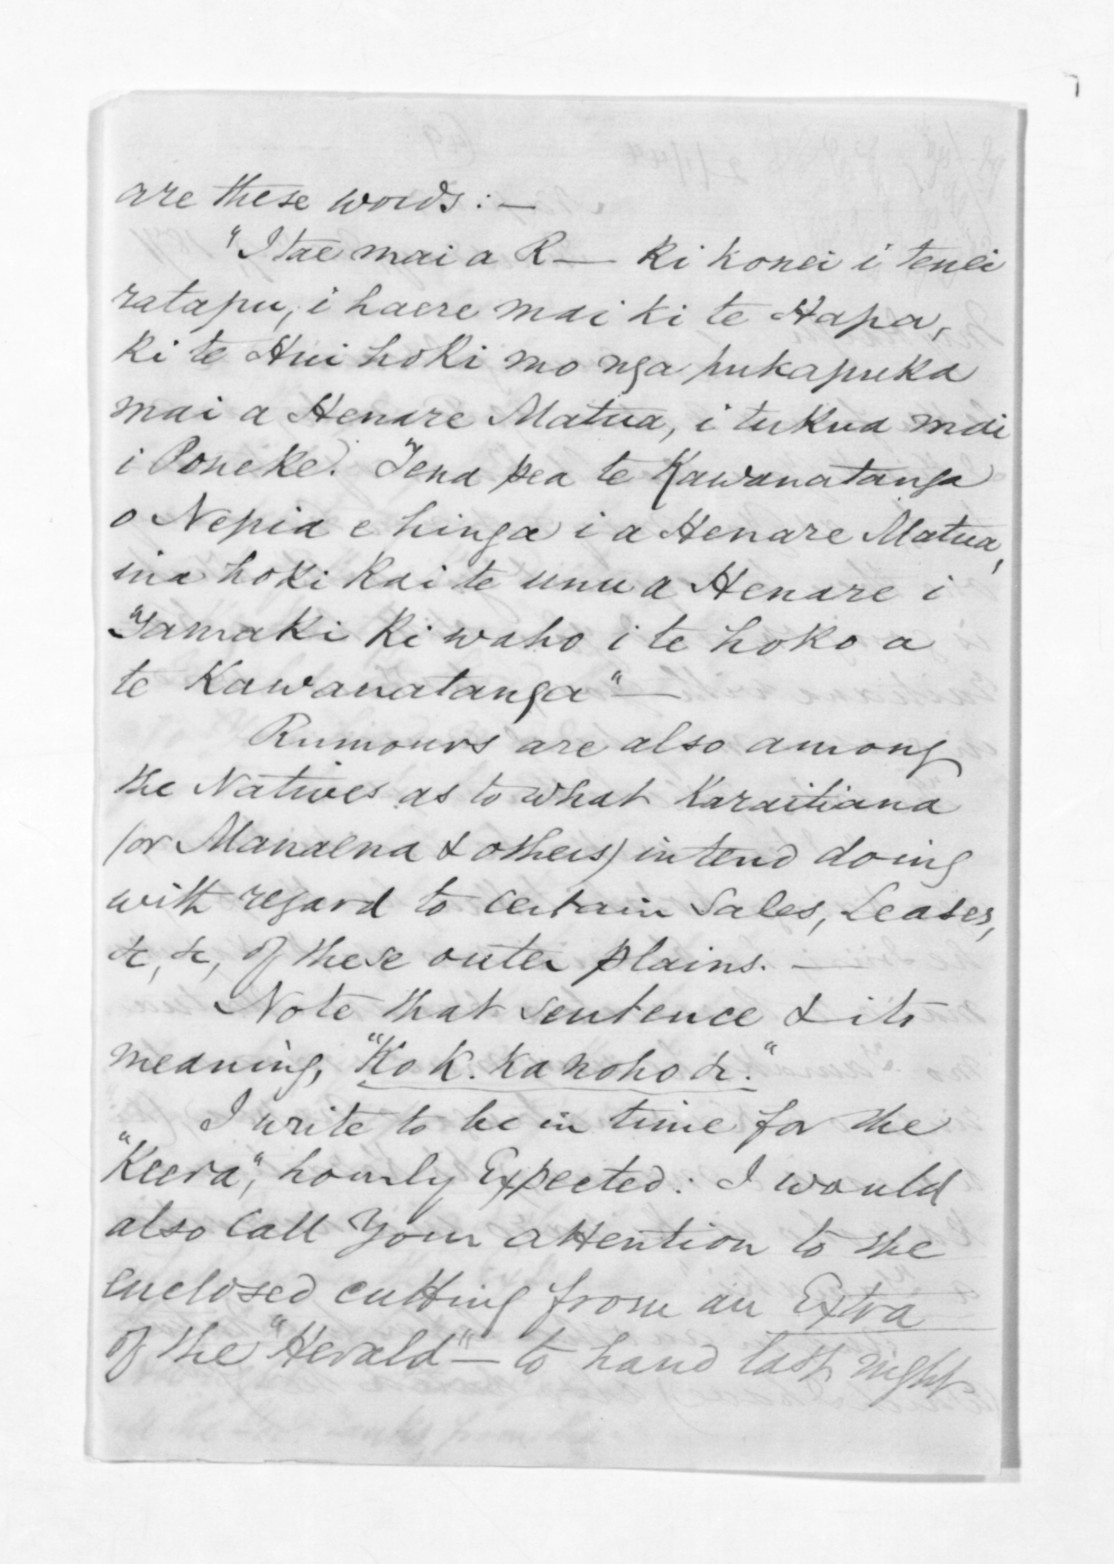 are these words: —
"I tae mai a R— ki konei i tenei
ratapu, i haere mai ki te Hapa,
ki te Hui hoki mo nga pukapuka
mai a Henare Matua, i tukua mai
i Poneke. Tena pea te Kawanatanga
o Nepia e hinga i a Henare Matua,
ina hoki kai te unu a Henare i
Tamaki ki waho i te hoko a
te Kawanatanga" —
Rumours are also among
the Natives as to what Karaitiana
(or Manaena & others) intend doing
with regard to certain Sales, Leases,
&c, &c, of these outer plains. —
Note that sentence & its
meaning, "Ko K. Ka noho &c."
I write to be in time for the
"Keera", hourly Expected: I would
also call your attention to the
enclosed cutting from an Extra
of the "Herald" — to hand last night